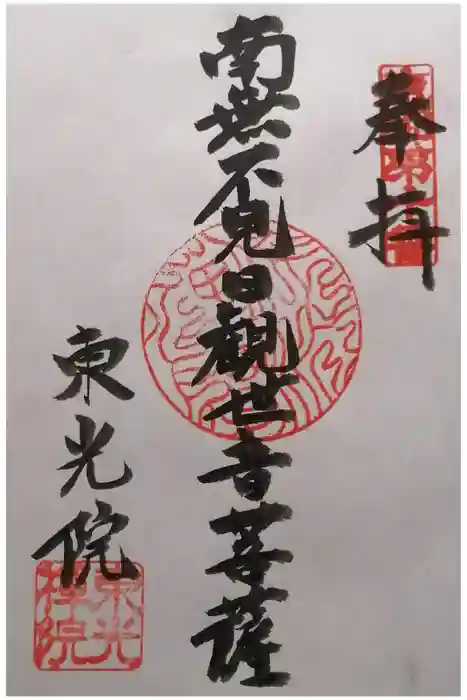 奉拝
南無不見日観世音菩薩
東光院
東光禅院